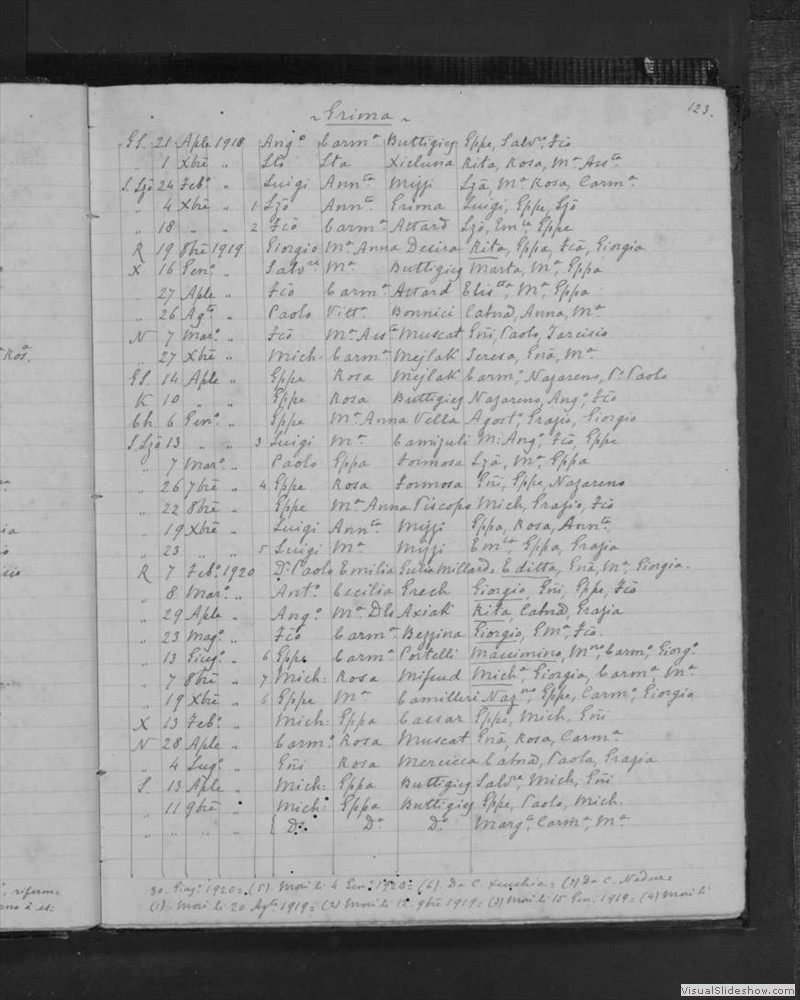 ~ Grima ~
123.
GS. 21 Aple 1918 Angº Carmª Buttigieg Gppe, Salvre, Fcõ
1 Xbrē " Stõ Sta Xicluna Rita, Rosa, Mª Assta
S. Lzõ 24 Febº " Luigi Annta Mizzi Lzã, Mª Rosa, Carmª
" 4 Xbrē " 1 Lzõ Annta Grima Luigi, Gppe, Lzõ
" 18 " " 2 Fcõ Carmª Attard Lzõ, Emle, Gppe
R 19 8brē 1919 Giorgio Mª Anna Desira Rita, Gppa, Fcã, Giorgia
X 16 Genº " Salvre Mª Buttigieg Marta, Mª, Gppa
" 27 Aple " Fcõ Carmª Attard Elistta, Mª, Gppa
" 26 Agto " Paolo Vittª Bonnici Catnã, Anna, Mª
N 7 Marº " Fcõ Mª Assta Muscat Gñi, Paolo, Tarcisio
" 27 Xbrē " Mich. Carmª Mejlak Teresa, Gnã, Mª
GS. 14 Aple " Gppe Rosa Mejlak Carmº, Nazareno, Pº Paolo
K 10 " " Gppe Rosa Buttigieg Nazareno, Angº, Fcõ
Ch 6 Genº " Gppe Mª Anna Vella Agostº, Grazio, Giorgio
S. Lzõ 13 " " 3 Luigi Mª Camizuli M: Angº, Fcõ, Gppe
" 7 Marº " Paolo Gppa Formosa Lzã, Mª, Gppa
" 26 7brē " 4 Gppe Rosa Formosa Gñi, Gppe, Nazareno
" 22 8brē " Gppe Mª Anna Piscopo Mich, Grazio, Fcõ
" 19 Xbrē " Luigi Annta Mizzi Gppa, Rosa, Annta
" 23 " " 5 Luigi Mª Mizzi Emla, Gppa, Grazia
R 7 Febº 1920 Dr Paolo Emilia Millard Editta, Gnã, Mª, Giorgia
" 8 Marº " Antº Cecilia Grech Giorgio, Gñi, Gppe, Fcõ
" 29 Aple " Angº Mª Dls Axiak Rita, Catnã, Grazia
" 23 Magº " Fcõ Carmª Bezzina Giorgio, Emª, Fcõ
" 13 Giugº " 6 Gppe Carmª Portelli Massimino, Mno, Carmº, Giorgº
" 7 8brē " 7 Mich: Rosa Mifsud Michª, Giorgia, Carmª, Mª
" 19 Xbrē " 6 Gppe Mª Camilleri Nazno, Gppe, Carmº, Giorgia
X 13 Febº " Mich: Gppa Caesar Gppe, Mich, Gñi
N 28 Aple " Carmº Rosa Muscat Gnã, Rosa, Carmª
" 4 Lugº " Gñi Rosa Mercieca Catnã, Paola, Grazia
S. 13 Aple " Mich: Gppa Buttigieg Salvre, Mich, Gñi
" 11 9brē " Mich: Gppa Buttigieg Gppe, Paolo, Mich.
" " " " { Dº Dª Dº Margª, Carmª, Mª
30. Giugº 1920= (5). Mori li 4 Genº 1920= (6). Da C. Xeuchia= (7) Da C. Nadur=
(1). Mori li 20 Agto 1919= (2) Mori li 12. 9brē 1919= (3) Mori li 15 Genº 1919= (4) Mori li
VisualSlideshow.com